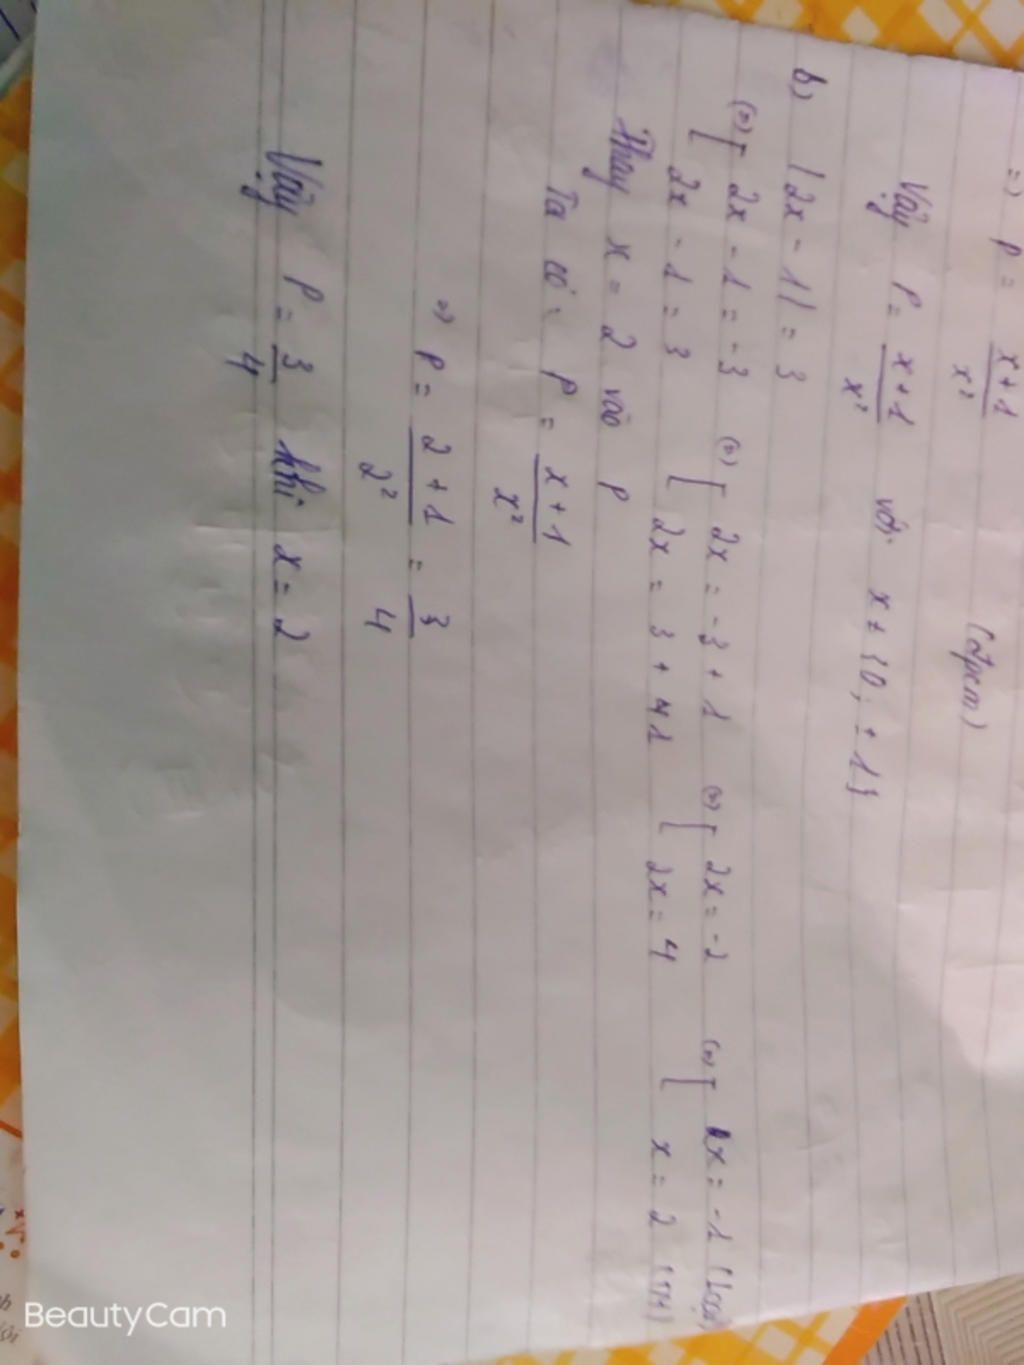 => P = x+1/x²
(đpcm)
Vậy P = x+1/x² với x ≠ {0; ±1}
b) |2x - 1| = 3
(=) [ 2x - 1 = -3 (=) [ 2x = -3 + 1 (=) [ 2x = -2 (=) [ x = -1 (loại)
[ 2x - 1 = 3 [ 2x = 3 + 1 [ 2x = 4 [ x = 2 (TM)
Thay x = 2 vào P
Ta có: P = x+1/x²
=> P = 2+1/2² = 3/4
Vậy P = 3/4 khi x = 2
BeautyCam